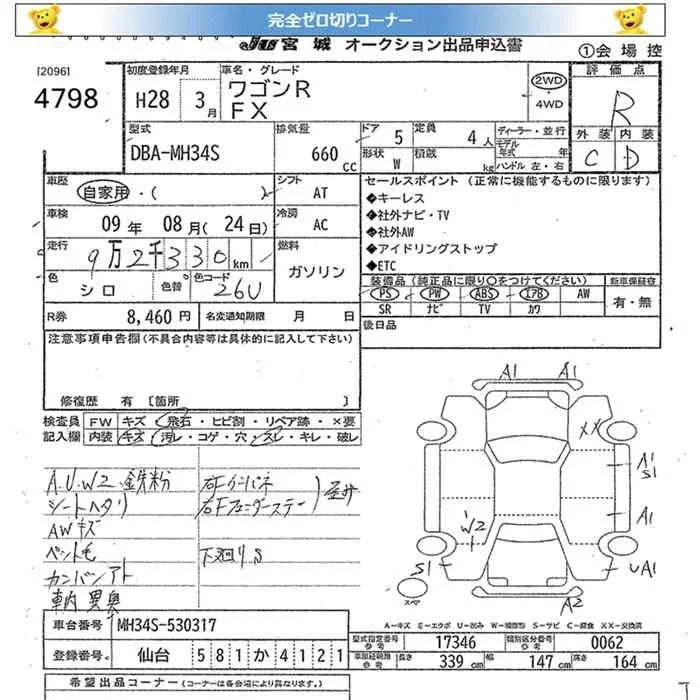 完全ゼロ切りコーナー
JU宮城 オークション出品申込書
①会場控
[2096]
4798
初度登録年月
H28 3月
車名・グレード
ワゴンR
FX
2WD
・4WD
評価点
R
外装 内装
C D
型式
DBA-MH34S
排気量
660 cc
ドア 5
定員 4人
形状 W
積載 kg
ディーラー・並行
モデル年式 年
ハンドル 左・右
車歴
自家用・( )
シフト AT
車検
09年 08月(24日)
冷房 AC
走行
9万2千330km
燃料
ガソリン
色
シロ
色替
色コード
26U
R券 8,460円
名変通知期限 月 日
セールスポイント (正常に機能するものに限ります)
◆キーレス
◆社外ナビ・TV
◆社外AW
◆アイドリングストップ
◆ETC
装備品(純正品に限り○をつけてください)
PS PW ABS エアB AW
SR ナビ TV カワ
新車保証書
有・無
後日品
注意事項申告欄(不具合内容等は具体的に記入して下さい)
修復歴 有 [箇所 ]
検査員 FW キズ・飛石・ヒビ割・リペア跡・×要
記入欄 内装 キズ・汚レ・コゲ・穴・スレ・キレ・破レ
A.U.W2 鉄粉
シートヘタリ
AWキズ
ペット毛
カンバンアト
車内異臭
右Fインパネ
右Fフェンダーステー
下廻りS
A1 A1
XX
A1
S1
A1
W2
S1
UA1
A2
スペア
A－キズ E－エクボ U－凹み W－補修形 S－サビ C－腐食 XX－交換済
車台番号 MH34S-530317
登録番号 仙台 581か4121
型式指定番号 参考 17346
類別区分番号 参考 0062
車両総範囲 参考
長さ 339 cm 幅 147 cm 高さ 164 cm
希望出品コーナー(コーナーは各会場により異なります)